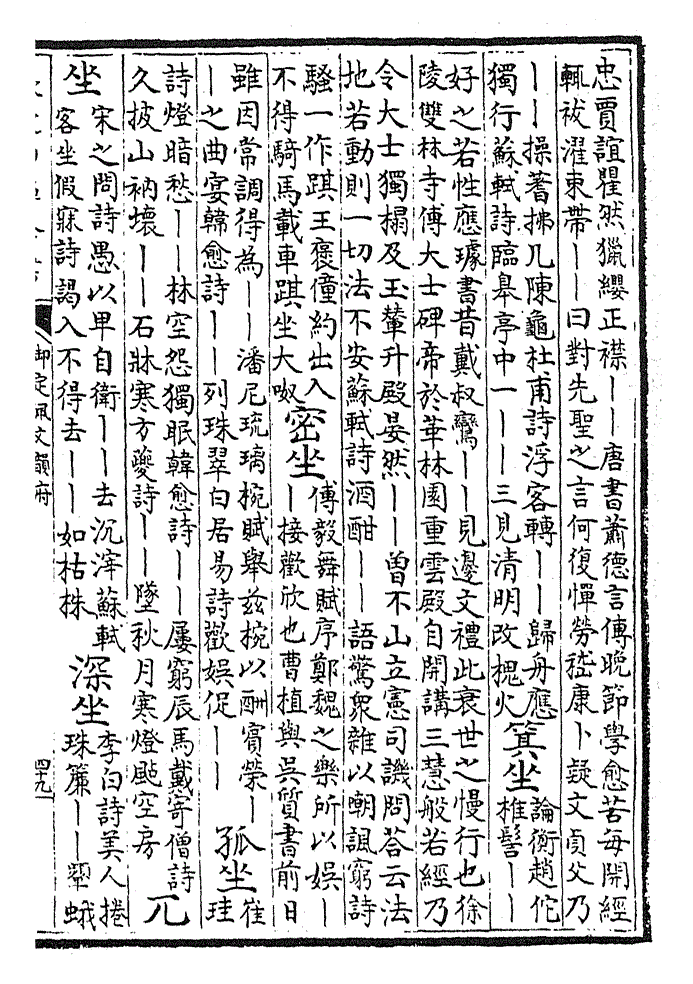 忠賈誼瞿然獵纓正襟丨丨唐書蕭德言傳晚節學愈苦每開經
輒祓濯束帶丨丨曰對先聖之言何復憚勞嵇康卜疑文貞父乃
丨丨操蓍拂几陳龜杜甫詩浮客轉丨丨歸舟應
獨行蘇軾詩臨皋亭中一丨丨三見清明改槐火
箕坐
論衡趙佗
椎髻丨丨
好之若性應璩書昔戴叔鸞丨丨見邊文禮此衰世之慢行也徐
陵雙林寺傅大士碑帝於華林園重雲殿自開講三慧般若經乃
令大士獨榻及玉輦升殿晏然丨丨曾不山立憲司譏問荅云法
地若動則一切法不安蘇軾詩酒酣丨丨語驚衆雜以嘲諷窮詩
騷一作踑王褒僮約出入
不得騎馬載車踑坐大呶
密坐
傅毅舞賦序鄭魏之樂所以娛丨
丨接歡欣也曹植與吳質書前日
雖因常調得為丨丨潘尼琉璃椀賦舉兹椀以酬賓榮丨
丨之曲宴韓愈詩丨丨列珠翠白居易詩歡娛促丨丨
孤坐
崔
珪
詩燈暗愁丨丨林空怨獨眠韓愈詩丨丨屢窮辰馬戴寄僧詩
久披山衲壞丨丨石牀寒方夔詩丨丨墜秋月寒燈颭空房
兀
坐
宋之問詩愚以卑自衛丨丨去沉滓蘇軾
客坐假寐詩謁入不得去丨丨如枯株
深坐
李白詩美人捲
珠簾丨丨顰蛾
御定佩文韻府
四十九